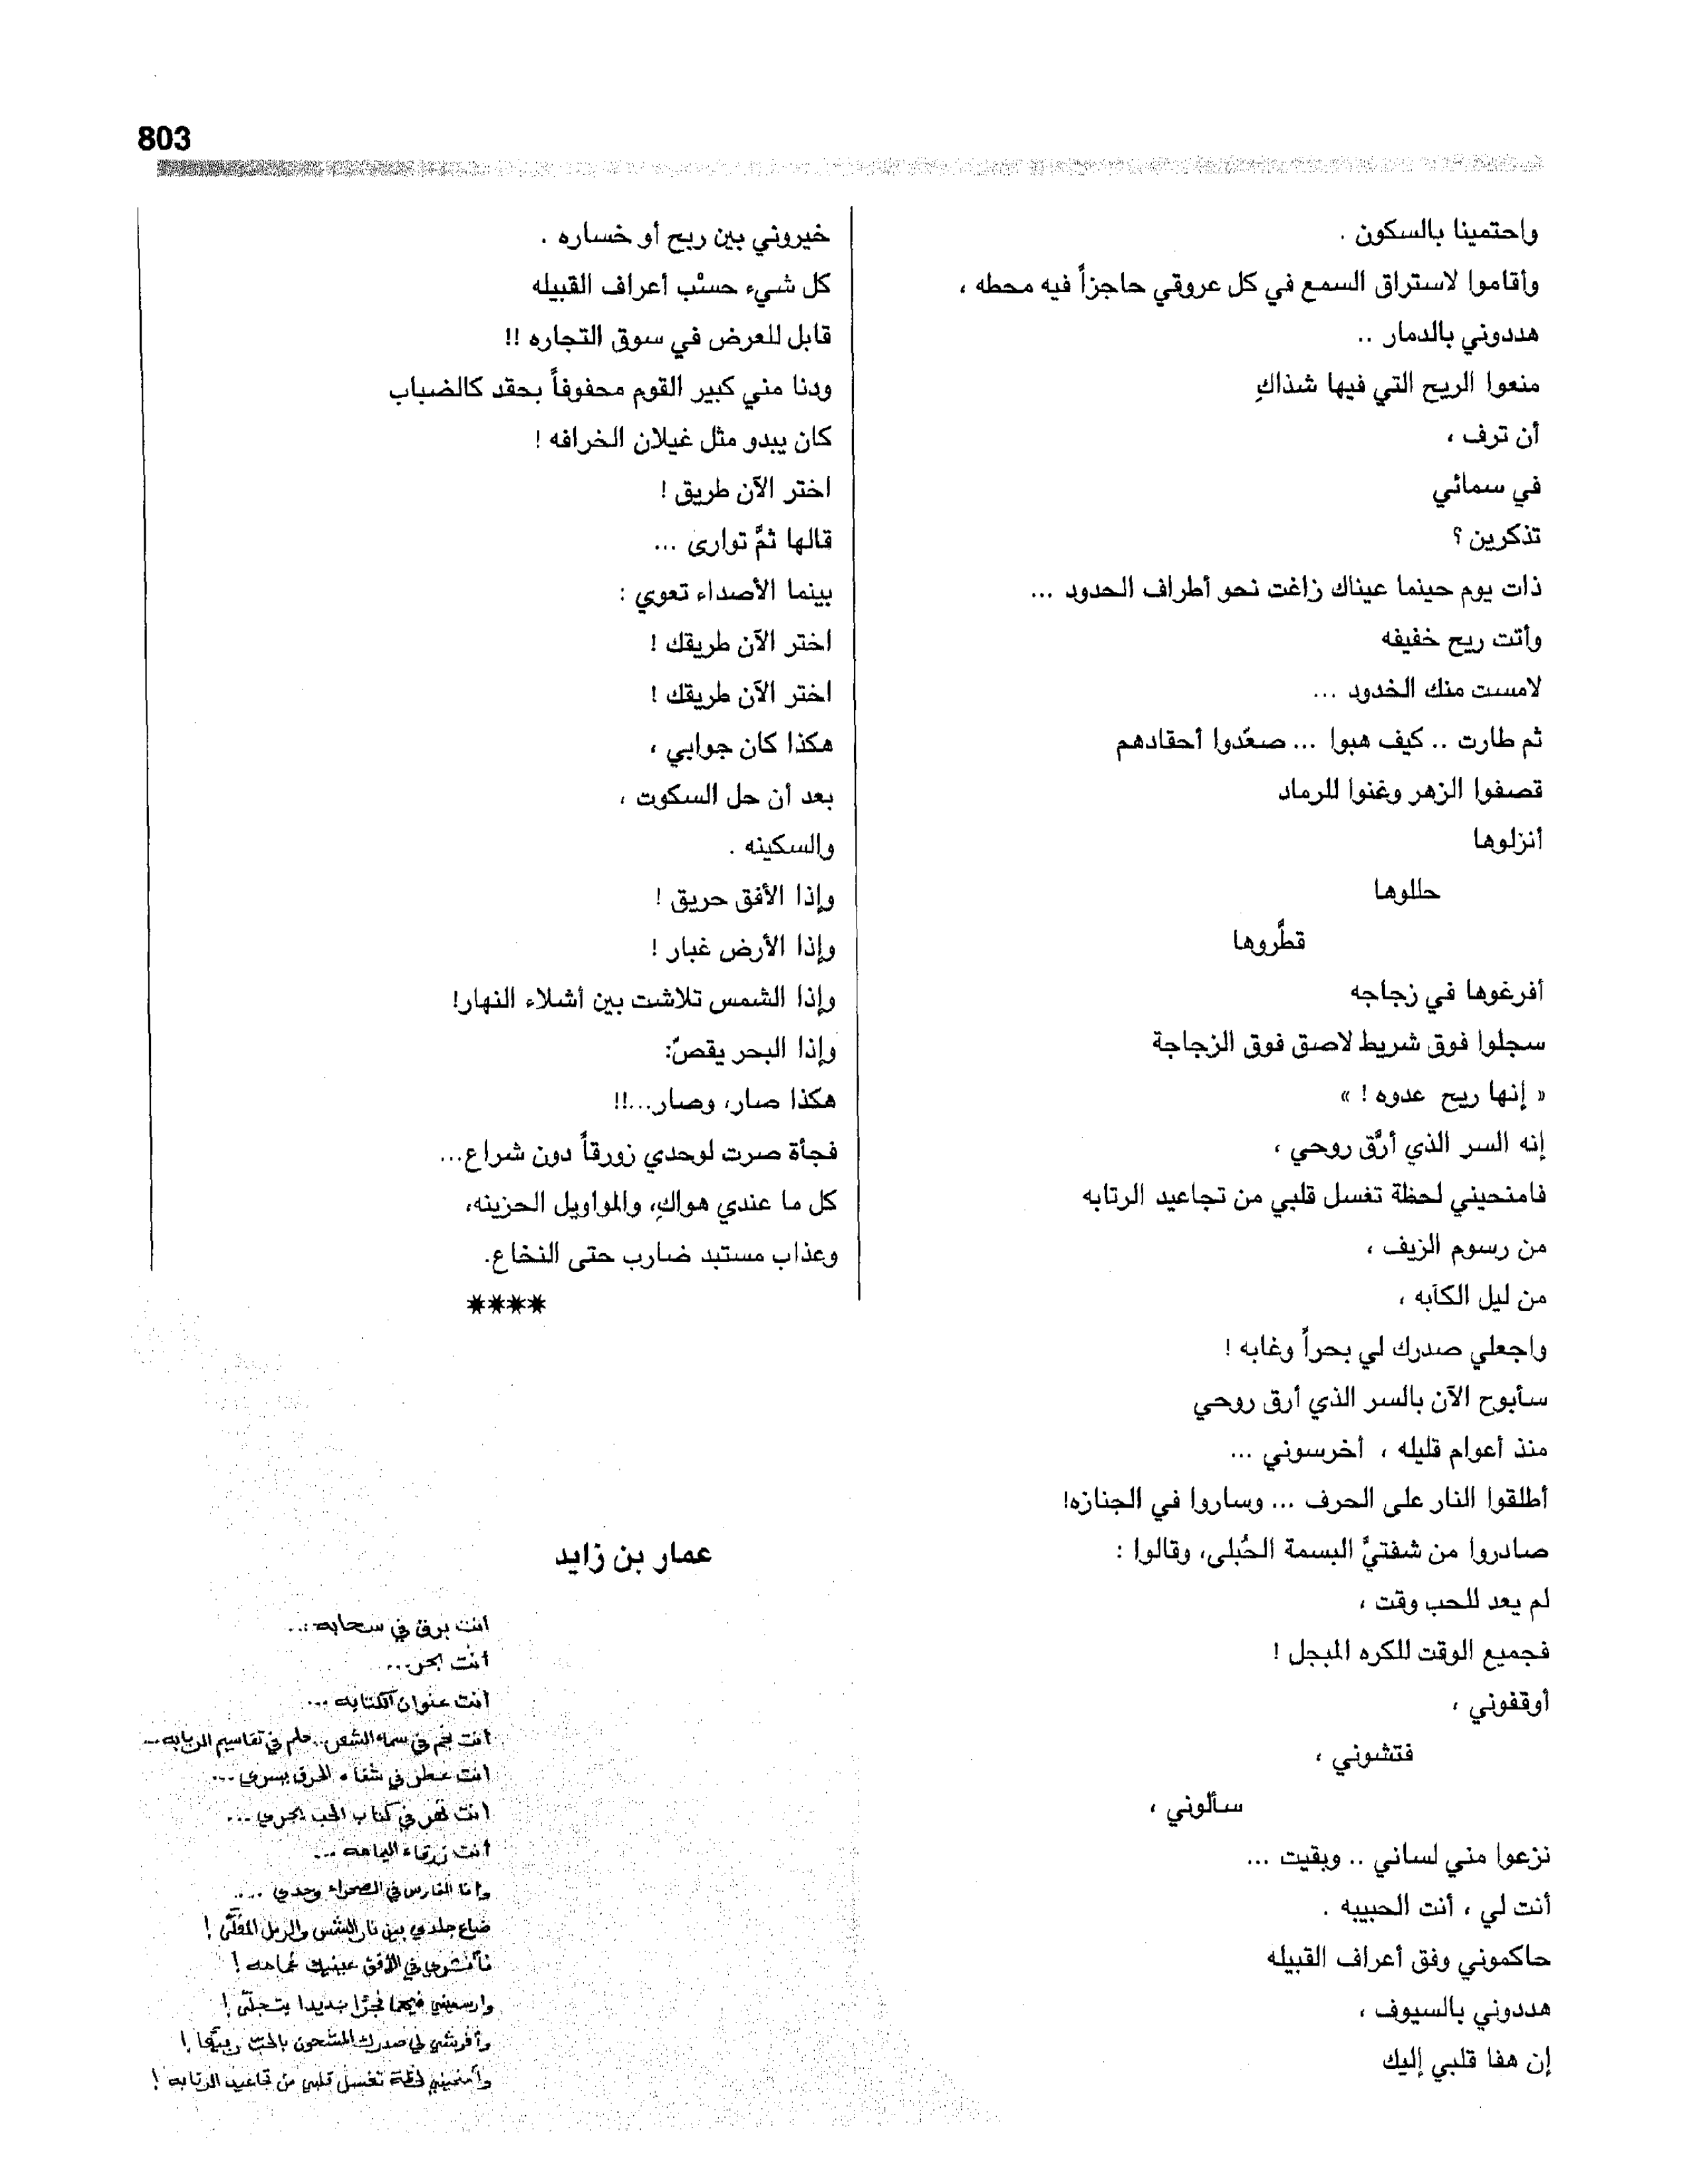 803
واحتمينا بالسكون .
وأقاموا لاستراق السمع في كل عروقي حاجزاً فيه محطه ،
هددوني بالدمار ..
منعوا الريح التي فيها شذاكِ
أن ترف ،
في سمائي
تذكرين ؟
ذات يوم حينما عيناك زاغت نحو أطراف الحدود ...
وأتت ريح خفيفه
لامست منك الخدود ...
ثم طارت .. كيف هبوا ... صعّدوا أحقادهم
قصفوا الزهر وغنوا للرماد
أنزلوها
حللوها
قطَّروها
أفرغوها في زجاجه
سجلوا فوق شريط لاصق فوق الزجاجة
« إنها ريح عدوه ! »
إنه السر الذي أرَّق روحي ،
فامنحيني لحظة تغسل قلبي من تجاعيد الرتابه
من رسوم الزيف ،
من ليل الكآبه ،
واجعلي صدرك لي بحراً وغابه !
سأبوح الآن بالسر الذي أرق روحي
منذ أعوام قليله ، أخرسوني ...
أطلقوا النار على الحرف ... وساروا في الجنازه!
صادروا من شفتيَّ البسمة الحُبلى، وقالوا :
لم يعد للحب وقت ،
فجميع الوقت للكره المبجل !
أوقفوني ،
فتشوني ،
سألوني ،
نزعوا مني لساني .. وبقيت ...
أنت لي ، أنت الحبيبه .
حاكموني وفق أعراف القبيله
هددوني بالسيوف ،
إن هفا قلبي إليك
خيروني بين ربح أو خساره .
كل شيء حسْب أعراف القبيله
قابل للعرض في سوق التجاره !!
ودنا مني كبير القوم محفوفاً بحقد كالضباب
كان يبدو مثل غيلان الخرافه !
اختر الآن طريق !
قالها ثمَّ توارى ...
بينما الأصداء تعوي :
اختر الآن طريقك !
اختر الآن طريقك !
هكذا كان جوابي ،
بعد أن حل السكوت ،
والسكينه .
وإذا الأفق حريق !
وإذا الأرض غبار !
وإذا الشمس تلاشت بين أشلاء النهار!
وإذا البحر يقصّ:
هكذا صار، وصار...!!
فجأة صرت لوحدي زورقاً دون شراع...
كل ما عندي هواكِ، والمواويل الحزينه،
وعذاب مستبد ضارب حتى النخاع.
****
عمار بن زايد
أنت برق في سحابه...
أنت بحر...
أنت عنوان الكتابه ...
أنت نجم في سماء الشعر.. حلم في تقاسيم الربابه...
أنت عطر في شفاه الحرف يسري ...
أنت نهر في كتاب الحب يجري ...
أنت زرقاء اليمامه ...
وأنا الفارس في الصحراء وحدي ....
ضاع جلدي بين نار الشمس والرمل المقلّى !
فأنشري في الأفق عينيك غمامه !
وارسميني فيهما فجرًا جديدا يتجلّى !
وأفرشي لي صدرك المشحون بالحب ربيعًا !
وأمنحيني لحظة تغسل قلبي من تجاعيد الرتابه !